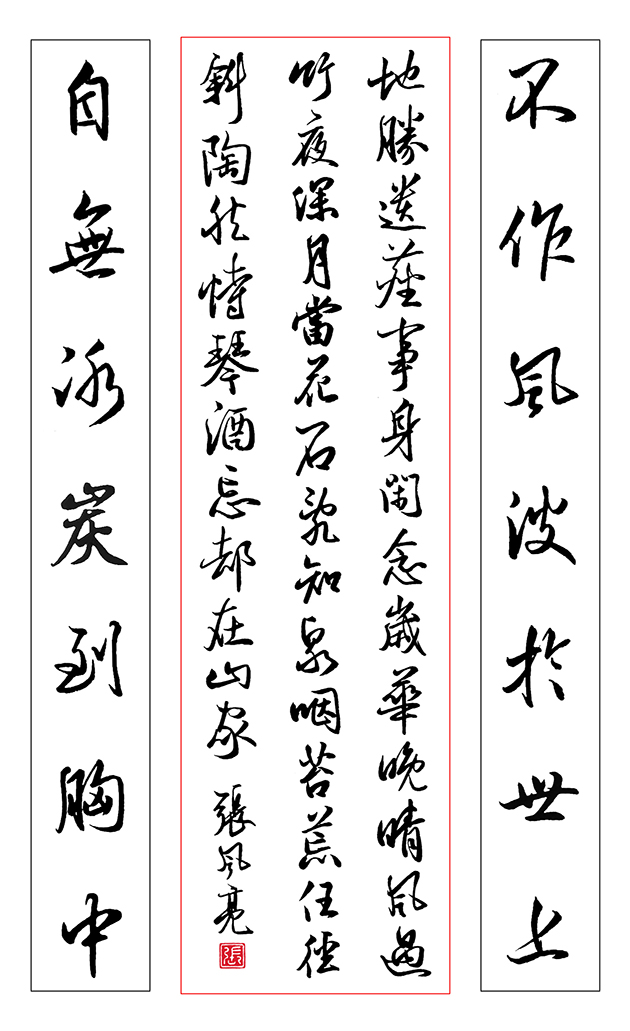 不作風波於世上
地勝遺塵事身閑念歲華晚晴風過
竹夜深月當花石亂知泉咽苔荒任徑
斜陶然恃琴酒忘却在山家 張風亮
張
自無冰炭到胸中